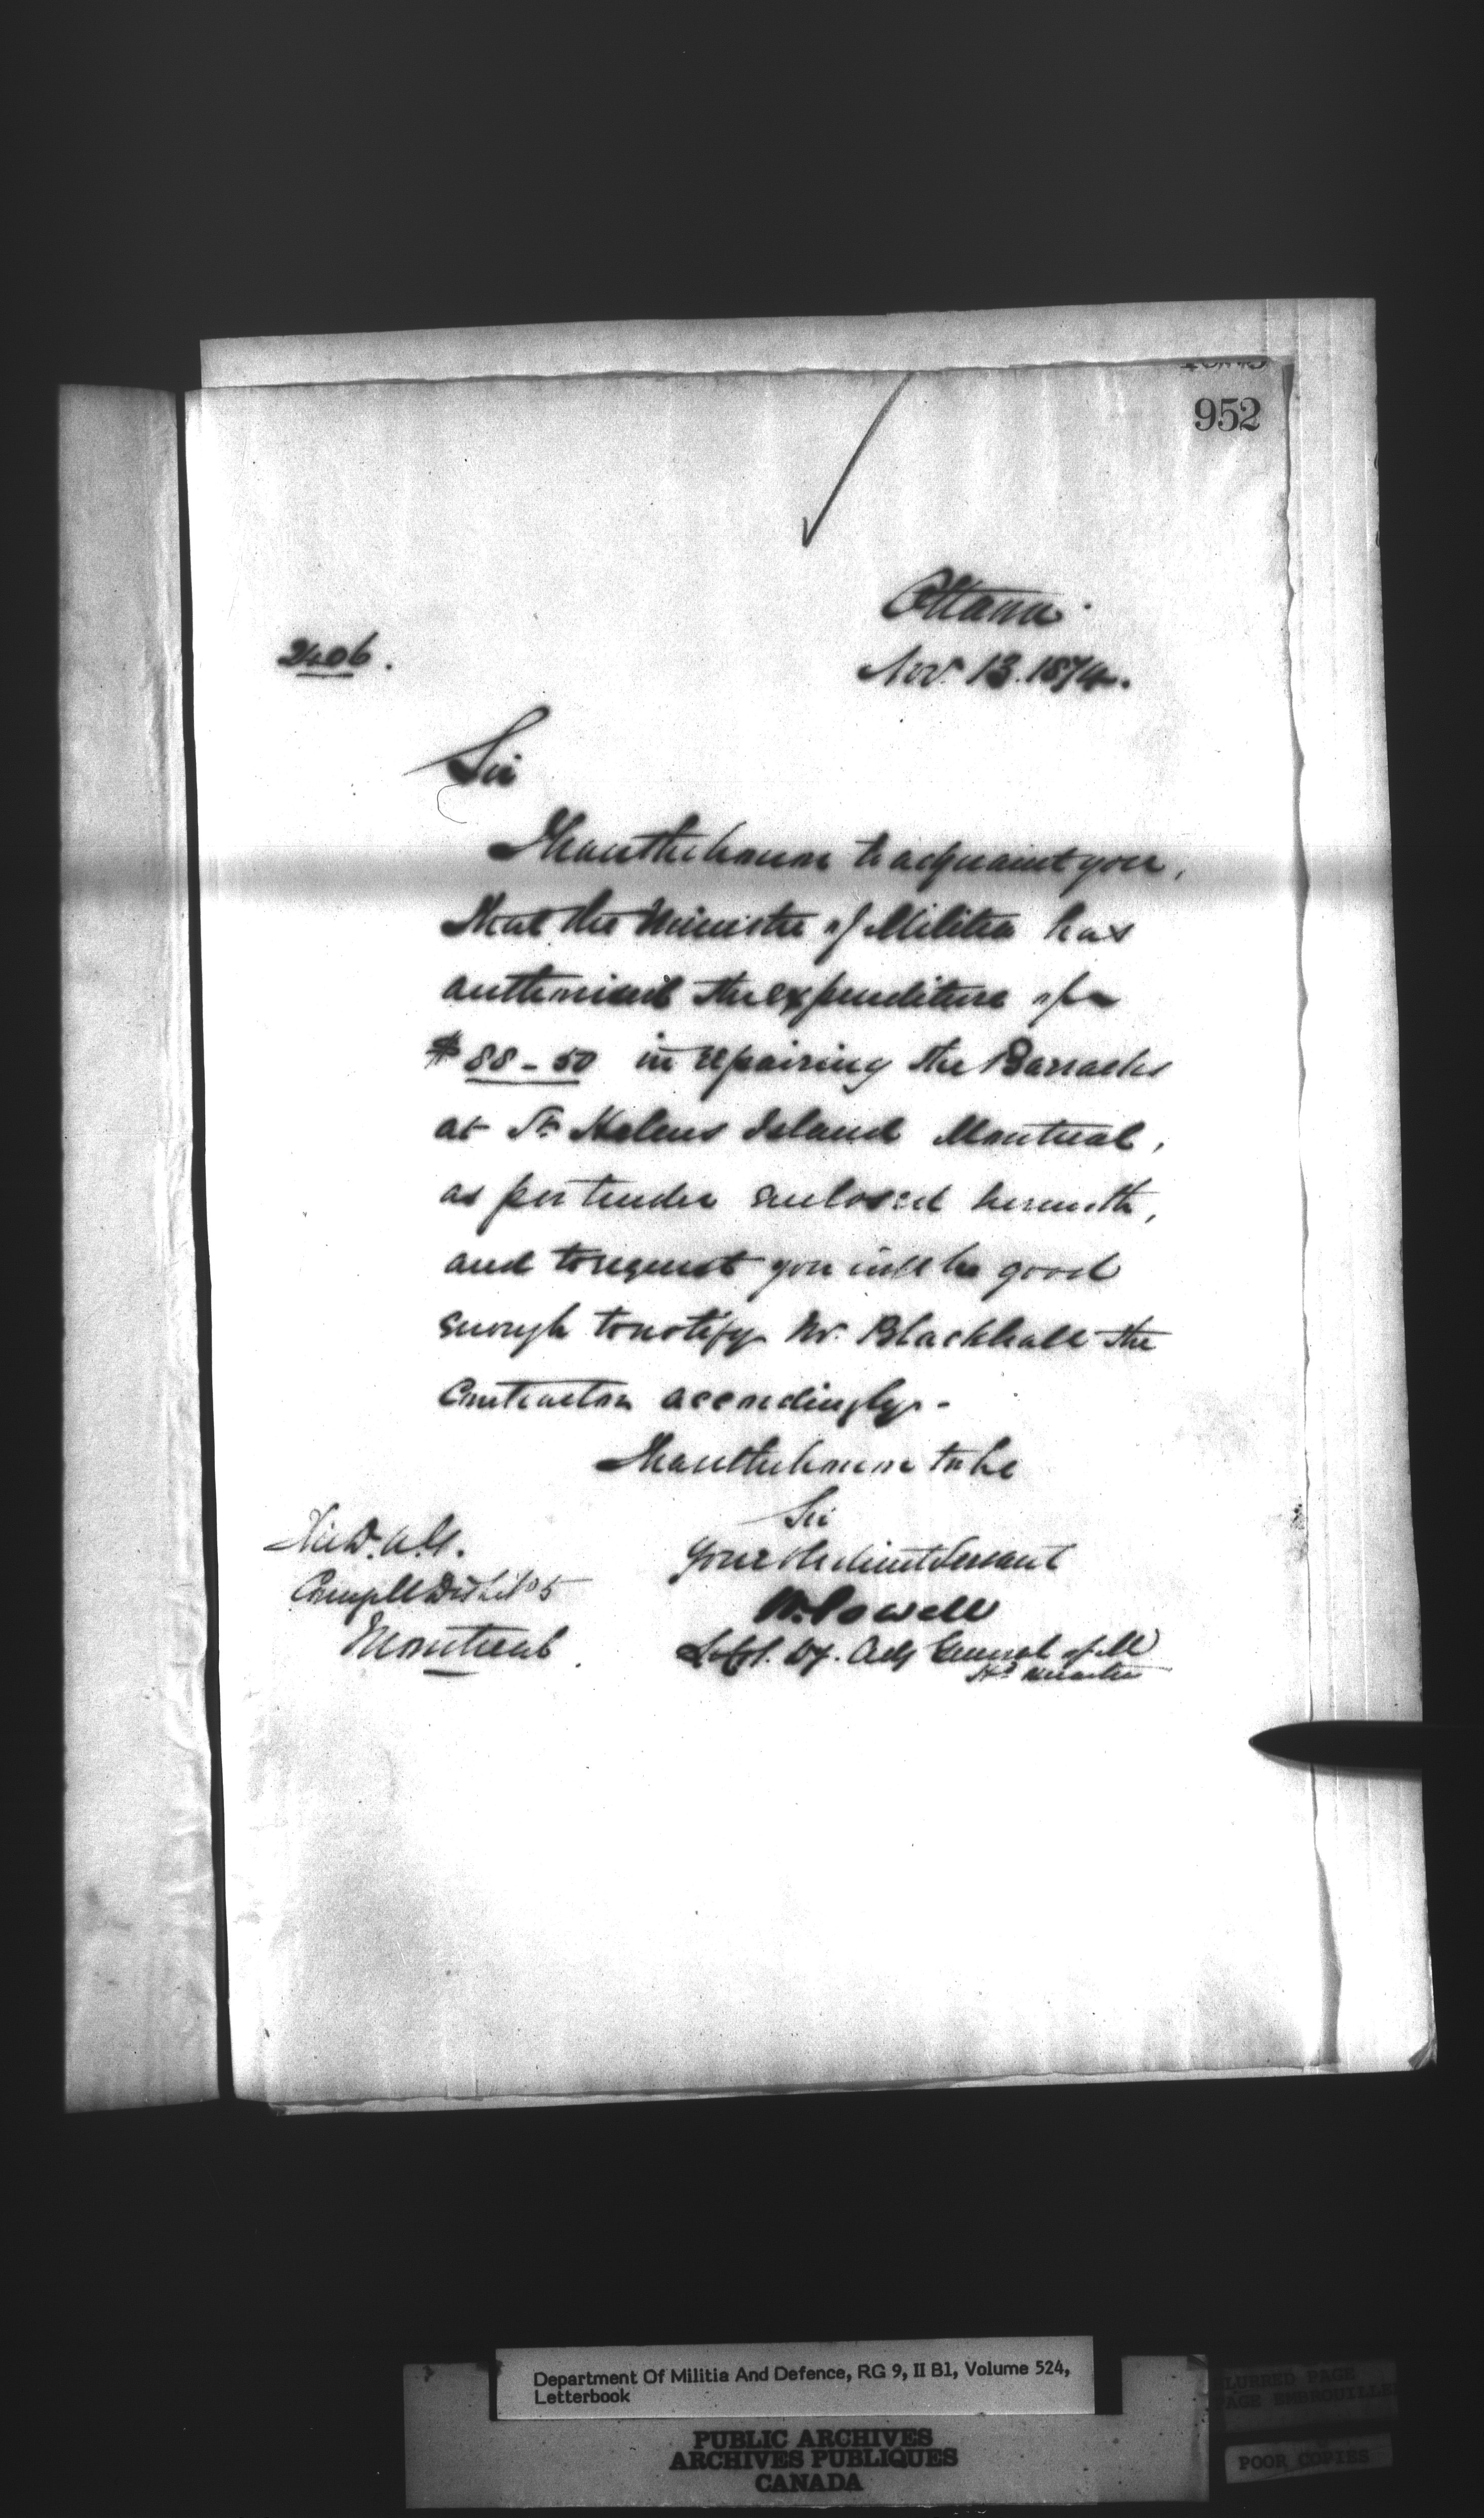 952
Ottawa.
2406.
Nov. 13. 1874.
Sir
I have the honor to acquaint you,
that the Minister of Militia has
authorised the expenditure of
$88-50 in repairing the Barracks
at St. Helens Island Montreal,
as per tender enclosed herewith,
and to request you will be good
enough to notify Mr. Blackhall the
Contractor accordingly.-
I have the honor to be
Sir
Your Obedient Servant
W. Powell
Lt. Col. Dy. Adj General of M
Hd Quarters
The D.A.G.
Comg Ml District No 5
Montreal.
Department Of Militia And Defence, RG 9, II B1, Volume 524,
Letterbook
PUBLIC ARCHIVES
ARCHIVES PUBLIQUES
CANADA
BLURRED PAGE
PAGE EMBROUILLE
POOR COPIES